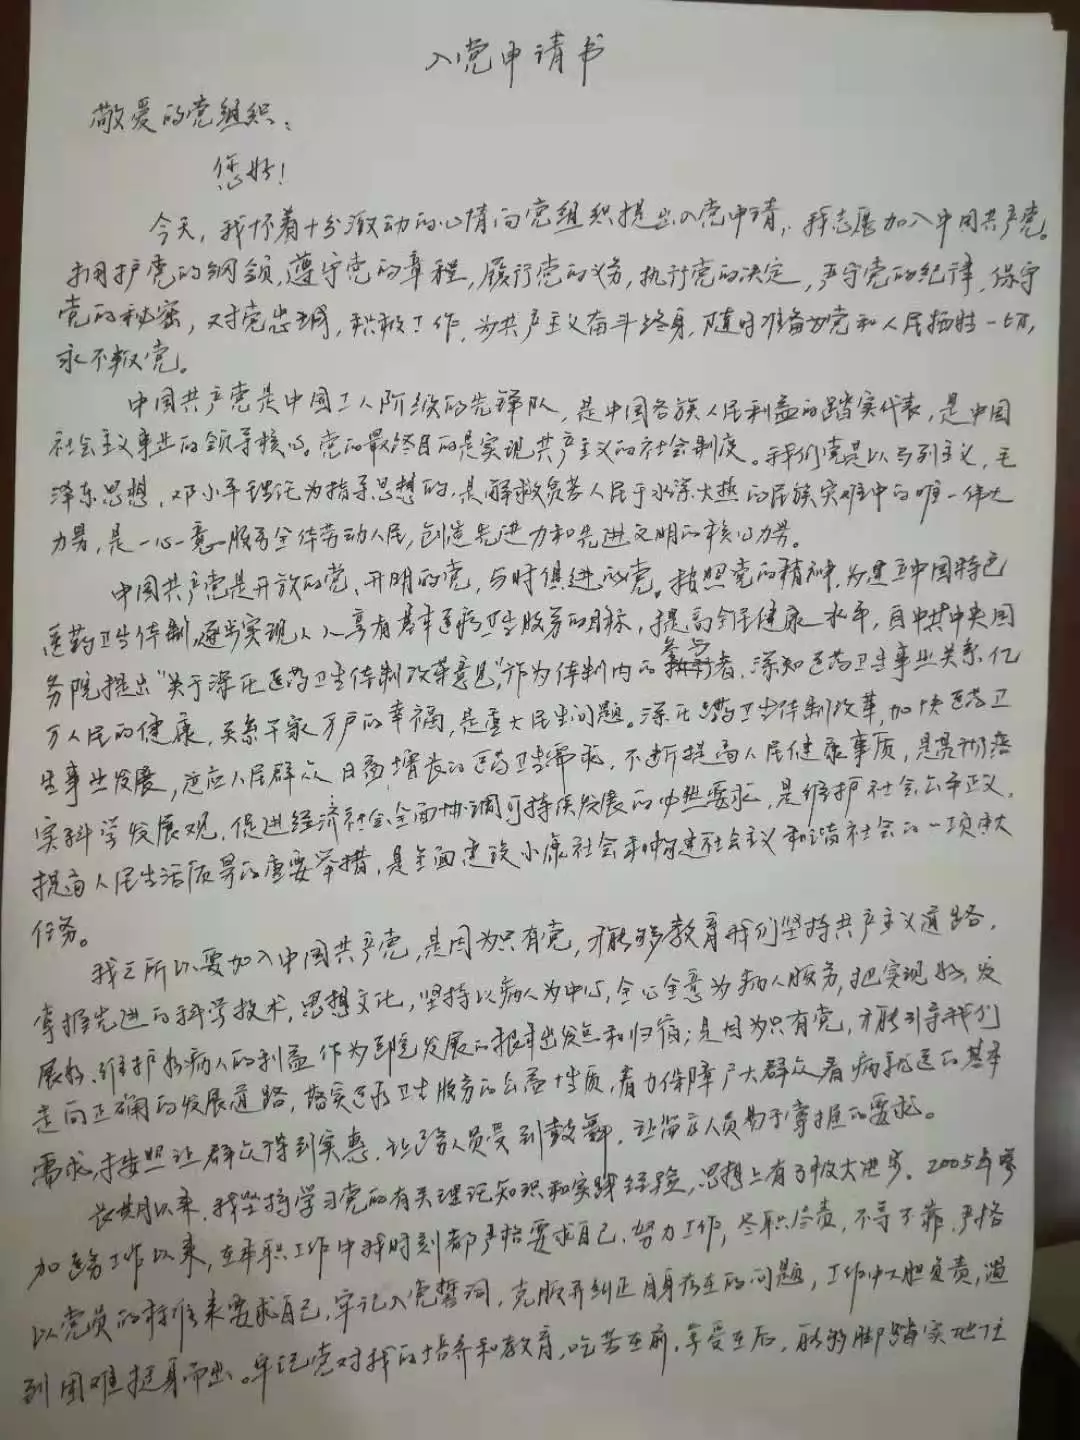 入党申请书
敬爱的党组织：
您好！
今天，我怀着十分激动的心情向党组织提出入党申请，我志愿加入中国共产党。
拥护党的纲领，遵守党的章程，履行党的义务，执行党的决定，严守党的纪律，保守
党的秘密，对党忠诚，积极工作，为共产主义奋斗终身，随时准备为党和人民牺牲一切，
永不叛党。
中国共产党是中国工人阶级的先锋队，是中国各族人民利益的踏实代表，是中国
社会主义事业的领导核心。党的最终目的是实现共产主义的社会制度。我们党是以马列主义，毛
泽东思想，邓小平理论为指导思想的，是解救负苦人民于水深火热的民族灾难中的唯一伟大
力量，是一心一意服务全体劳动人民，创造先进力和先进文明的核心力量。
中国共产党是开放的党、开明的党，与时俱进的党。按照党的精神，为建立中国特色
医药卫生体制，逐步实现人人享有基本医疗卫生服务的目标，提高全民健康水平，自中共中央国
务院提出“关于深化医药卫生体制改革意见”，作为体制内的参与者，深知医药卫生事业关系亿
万人民的健康，关系千家万户的幸福，是重大民生问题。深化医药卫生体制改革，加快医药卫
生事业发展，适应人民群众日益增长的医药卫生需求，不断提高人民健康素质，是贯彻落
实科学发展观，促进经济社会全面协调可持续发展的必然要求，是维护社会公平正义、
提高人民生活质量的重要举措，是全面建设小康社会和构建社会主义和谐社会的一项重大
任务。
我之所以要加入中国共产党，是因为只有党，才能够教育我们坚持共产主义道路，
掌握先进的科学技术，思想文化，坚持以病人为中心，全心全意为病人服务，把实现好、发
展好、维护好病人的利益作为医院发展的根本出发点和归宿；是因为只有党，才能引导我们
走向正确的发展道路，踏实医疗卫生服务的公益性质，着力保障广大群众看病就医的基本
需求，按照让群众得到实惠，让医务人员受到鼓舞，让监管人员易于掌握的要求。
长期以来，我坚持学习党的有关理论知识和实践经验，思想上有了极大进步。2005年参
加医务工作以来，在本职工作中我时刻都严格要求自己，努力工作，尽职尽责，不等不靠，严格
以党员的标准来要求自己，牢记入党誓词，克服并纠正自身存在的问题，工作中大胆负责，遇
到困难挺身而出。牢记党对我的培养和教育，吃苦在前，享受在后，能够脚踏实地任